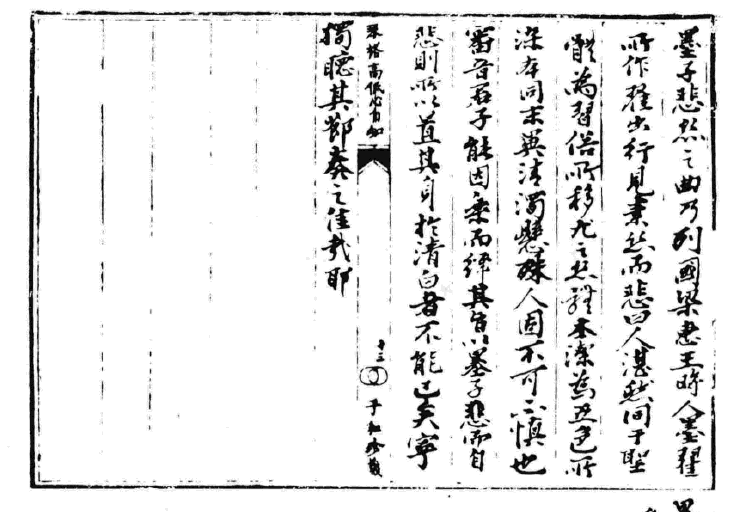 墨子悲絲之曲乃列國梁惠王時人墨翟
所作翟出行見素絲而悲曰人湛然同于聖
體為習俗所移尤之絲體本潔為五色所
染本同末異清濁懸殊人固不可不慎也
審音君子能因樂而繹其旨以墨子悲而自
悲則所以直其身於清白者不能已矣寧
高低心自知
十三
平和珍藏
獨聽其節奏之佳哉耶